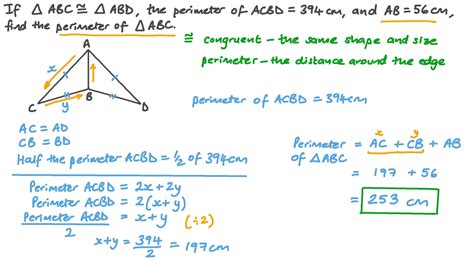 If △ ABC ≅ △ ABD, the perimeter of ACBD = 394cm, and AB = 56cm,
find the perimeter of △ABC.
≅ congruent - the same shape and size
perimeter - the distance around the edge
A
x
C
y
B
D
perimeter of ACBD = 394cm
AC = AD
CB = BD
Half the perimeter ACBD = 1/2 of 394cm
Perimeter ACBD = 2x + 2y
Perimeter ACBD = 2(x+y)
Perimeter ACBD / 2 = x+y (÷2)
x+y = 394/2 = 197cm
x y
Perimeter = AC + CB + AB
of △ABC
= 197 + 56
= 253 cm